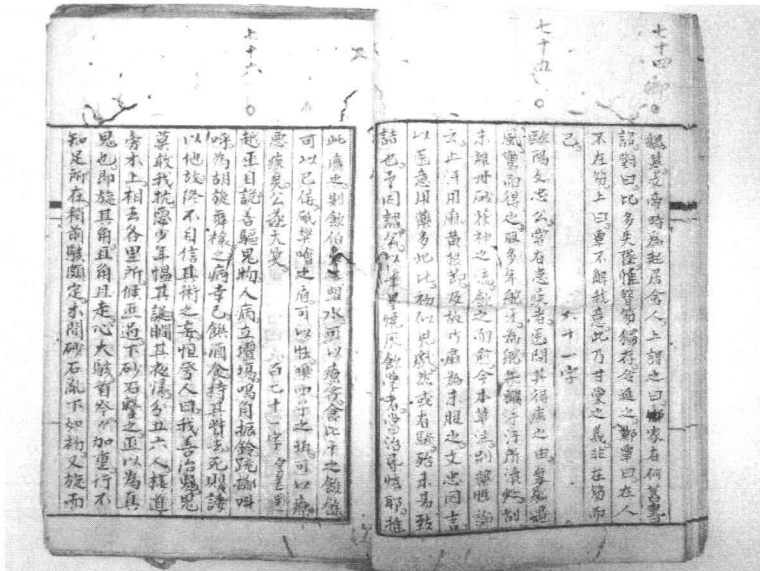 七十四
魏謩文帝時為起居舍人上謂之曰卿家有何舊書
詔對曰比多失墜惟簪笏獨存令進之鄭覃曰在人
不在笏上曰覃不解我意此乃甘棠之義非在笏而
已 六十一字
七十五
歐陽文忠公嘗有患疾者医問其得疾之由曰乗船遇
風驚而得之取多年舵牙為舵工手汗所漬处刮
末雜丹砂茯神之流飲之而愈今本草注别藥性論
云止汗用麻黄根節及故竹扇為末服之文忠因言
以医意用藥多此比初似兒戲然或有驗殆未易致
詰也予因謂公以筆墨燒灰飲學者当治昏惰耶推
此廣之則飲伯夷之盥水可以療貪食比干之餘餕
可以已佞舐樊噲之盾可以怯嗅西子之珥可以療
惡疾矣公遂大笑 百七十一字
七十六
越巫自詭善驅鬼物人病立壇場鳴角振鈴跳擲叫
呼為胡旋舞禳之病幸已饌酒食持其貲去死則諉
以他故終不自信其術之妄恒夸人曰我善治鬼鬼
莫敢我抗惡少年慍其誕瞯其夜歸分五六人棲道
旁木上相去各里所候巫過下砂石擊之巫以為真
鬼也即旋其角且角且走心大駭首岑〻加重行不
知足所在稍前駭頗定木間砂石亂下如初又旋而